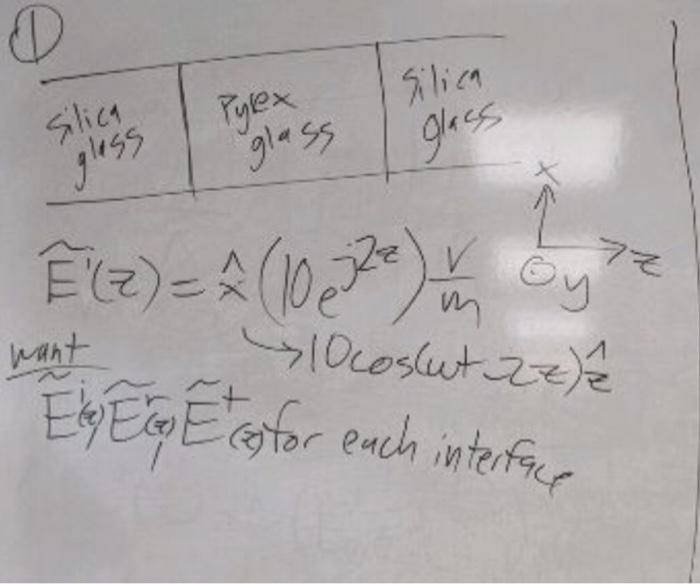 ①
Silica glass
Pyrex glass
Silica glass
x
z
y
Ẽⁱ(z) = x̂ (10e^{j2z}) V/m
→ 10cos(ωt - 2z)ẑ
want
Ẽⁱ(z), Ẽʳ(z), Ẽᵗ(z) for each interface